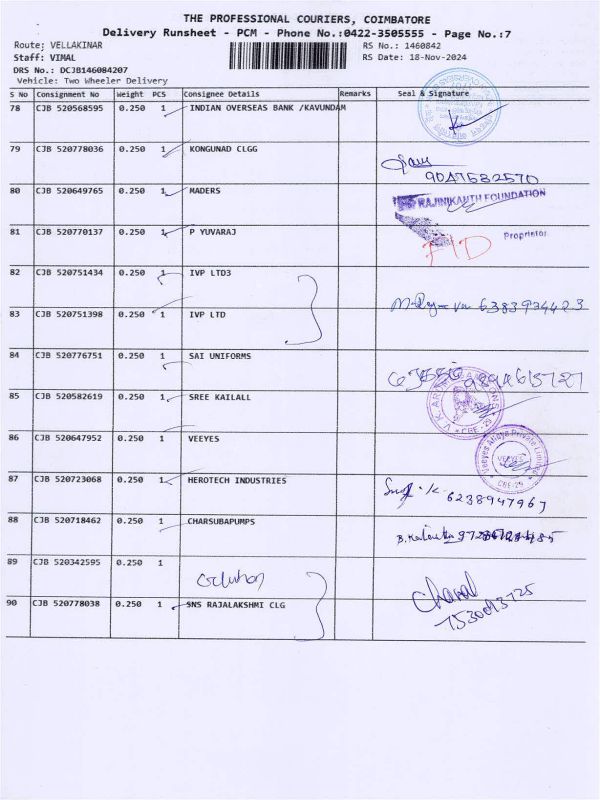 THE PROFESSIONAL COURIERS, COIMBATORE
Delivery Runsheet - PCM - Phone No.:0422-3505555 - Page No.:7
Route; VELLAKINAR RS No.: 1460842
Staff: VIMAL RS Date: 18-Nov-2024
DRS No.: DCJB146084207
Vehicle: Two Wheeler Delivery
S No Consignment No Weight PCS Consignee Details Remarks Seal & Signature
78 CJB 520568595 0.250 1 INDIAN OVERSEAS BANK /KAVUNDAM
79 CJB 520778036 0.250 1 KONGUNAD CLGG
9047582570
80 CJB 520649765 0.250 1 MADERS
RAJINIKANTH FOUNDATION
81 CJB 520770137 0.250 1 P YUVARAJ
Proprietor
82 CJB 520751434 0.250 1 IVP LTD3
83 CJB 520751398 0.250 1 IVP LTD
6383934423
84 CJB 520776751 0.250 1 SAI UNIFORMS
85 CJB 520582619 0.250 1 SREE KAILALL
CBE-29
86 CJB 520647952 0.250 1 VEEYES
Veeyes Alloys Private Limited
VEEYES
CBE-29
87 CJB 520723068 0.250 1 HEROTECH INDUSTRIES
6238947967
88 CJB 520718462 0.250 1 CHARSUBAPUMPS
89 CJB 520342595 0.250 1
90 CJB 520778038 0.250 1 SNS RAJALAKSHMI CLG